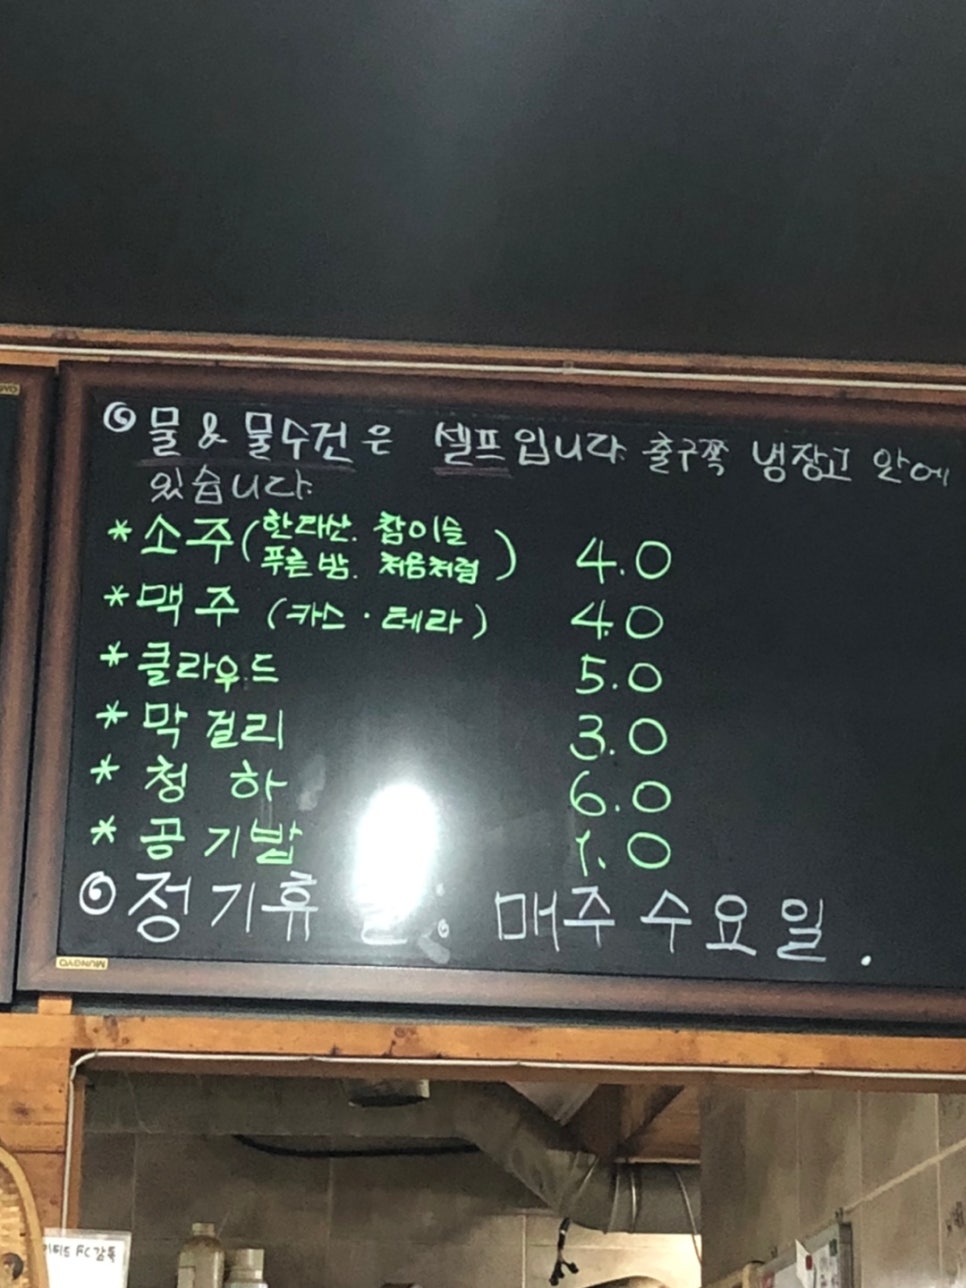 물 & 물수건은 셀프입니다. 출구쪽 냉장고 안에
있습니다.
* 소주 (한라산. 참이슬 푸른밤. 처음처럼) 4.0
* 맥주 (카스 · 테라) 4.0
* 클라우드 5.0
* 막걸리 3.0
* 청하 6.0
* 공기밥 1.0
정기휴일: 매주 수요일.
MUNGYO
FC감독